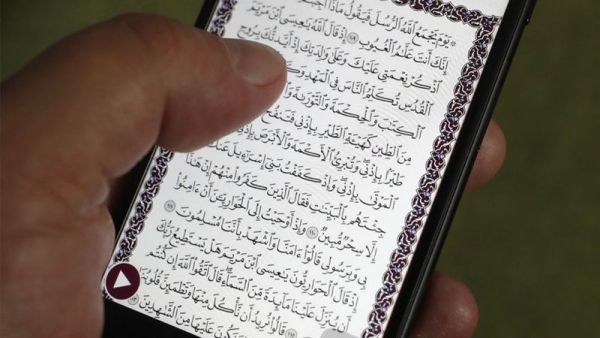 ۞ يَوْمَ يَجْمَعُ ٱللَّهُ ٱلرُّسُلَ فَيَقُولُ مَاذَآ
إِنَّكَ أَنتَ عَلَّٰمُ ٱلْغُيُوبِ ١٠٩ إِذْ قَالَ ٱللَّهُ يَٰعِيسَى ٱبْنَ مَرْيَمَ
ٱذْكُرْ نِعْمَتِى عَلَيْكَ وَعَلَىٰ وَٰلِدَتِكَ إِذْ أَيَّدتُّكَ بِرُوحِ
ٱلْقُدُسِ تُكَلِّمُ ٱلنَّاسَ فِى ٱلْمَهْدِ
ٱلْكِتَٰبَ وَٱلْحِكْمَةَ وَٱلتَّوْرَىٰةَ
مِنَ ٱلطِّينِ كَهَيْـَٔةِ ٱلطَّيْرِ بِإِذْنِى فَتَنفُخُ
طَيْرًۢا بِإِذْنِى ۖ وَتُبْرِئُ ٱلْأَكْمَهَ وَٱلْأَبْرَصَ بِإِذْنِى
ٱلْمَوْتَىٰ بِإِذْنِى ۖ وَإِذْ كَفَفْتُ بَنِىٓ إِسْرَٰٓءِيلَ عَنكَ
جِئْتَهُم بِٱلْبَيِّنَٰتِ فَقَالَ ٱلَّذِينَ كَفَرُوا۟ مِنْهُمْ إِنْ هَٰذَآ
إِلَّا سِحْرٌ مُّبِينٌ ١١٠ وَإِذْ أَوْحَيْتُ إِلَى ٱلْحَوَارِيِّۦنَ أَنْ ءَامِنُوا۟
بِى وَبِرَسُولِى قَالُوٓا۟ ءَامَنَّا وَٱشْهَدْ بِأَنَّنَا مُسْلِمُونَ ١١١
إِذْ قَالَ ٱلْحَوَارِيُّونَ يَٰعِيسَى ٱبْنَ مَرْيَمَ هَلْ يَسْتَطِيعُ رَبُّكَ
أَن يُنَزِّلَ عَلَيْنَا مَآئِدَةً مِّنَ ٱلسَّمَآءِ ۖ قَالَ ٱتَّقُوا۟ ٱللَّهَ إِن كُنتُم
١١٢ قَالُوا۟ نُرِيدُ أَن نَّأْكُلَ مِنْهَا وَتَطْمَئِنَّ قُلُوبُنَا
وَنَكُونَ عَلَيْهَا مِنَ ٱلشَّٰهِدِينَ ١١٣